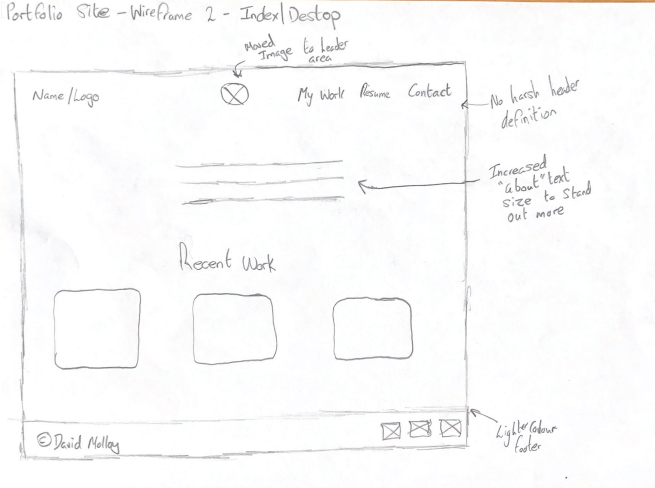 Portfolio Site - Wireframe 2 - Index/Destop
Moved
Image to header
area
Name/Logo
My Work Resume Contact
No harsh header
definition
Increased
"about" text
size to Stand
out more
Recent Work
© David Molloy
Lighter Colour
footer